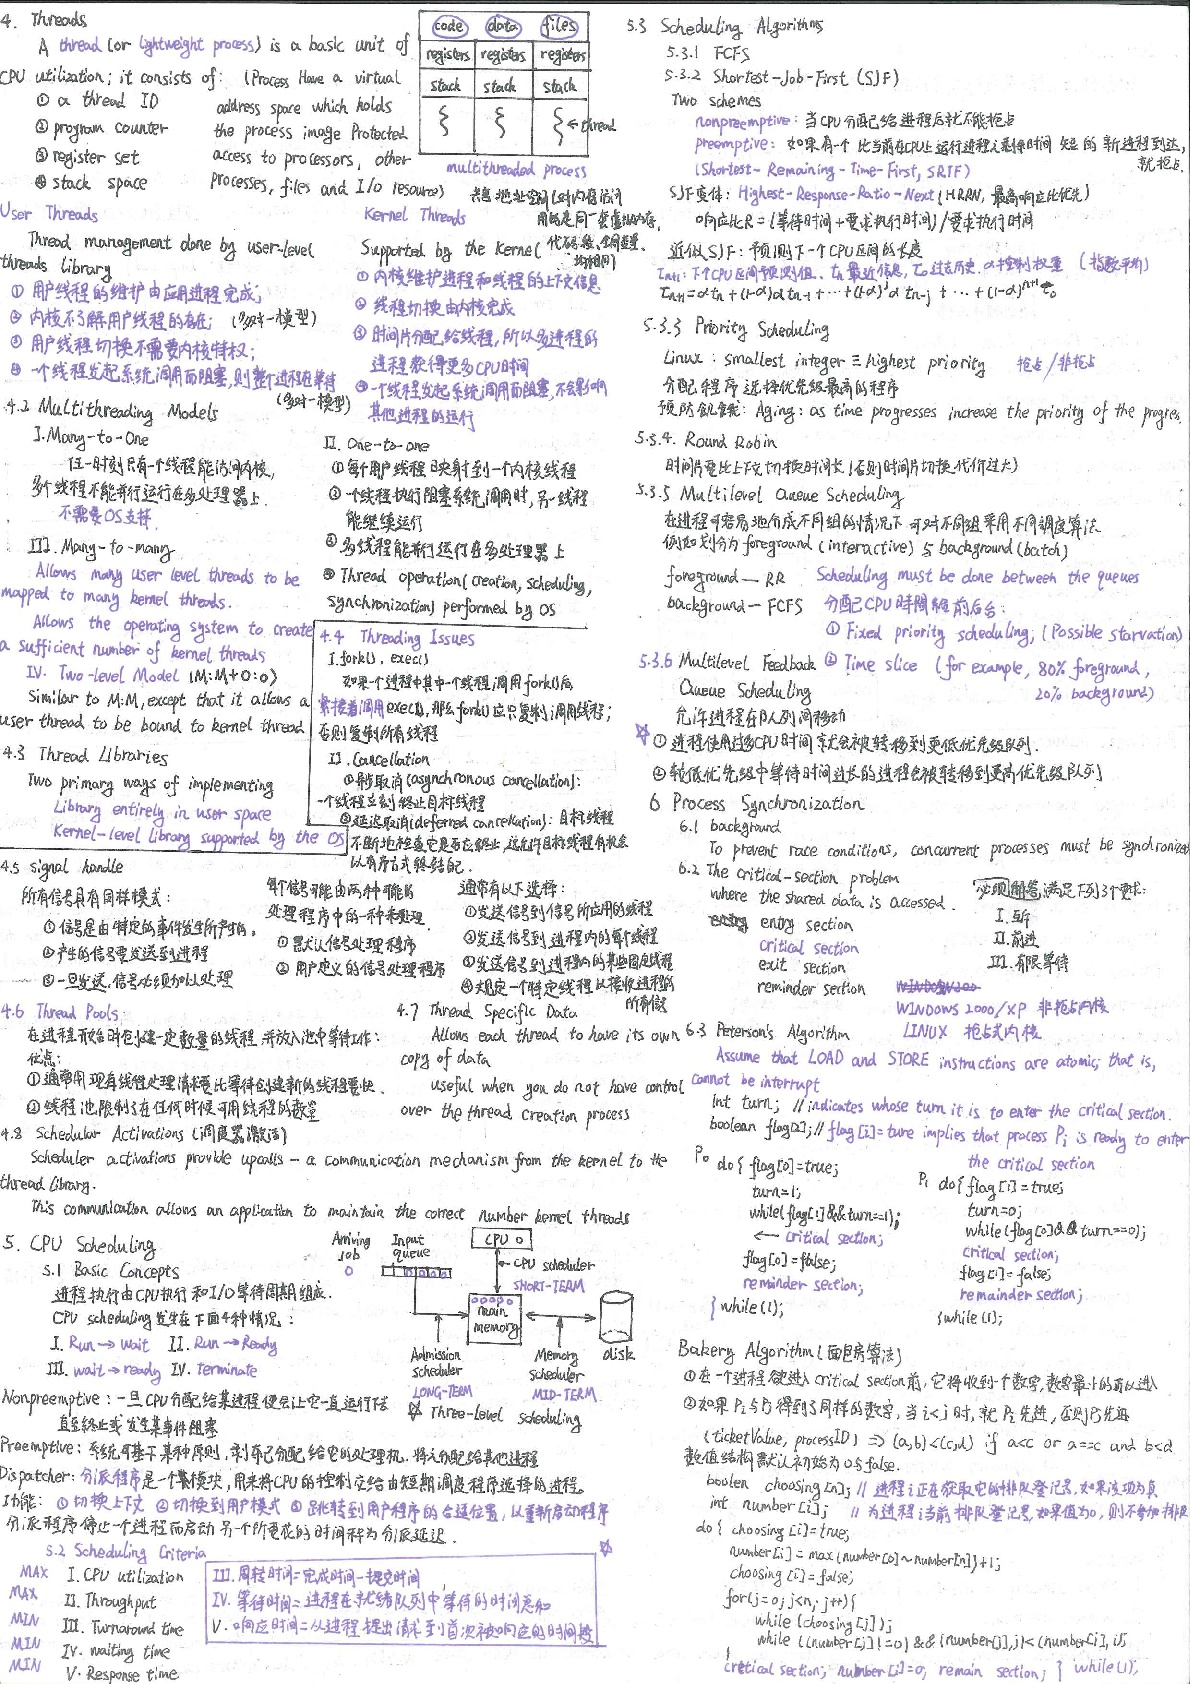 4. Threads
A thread (or lightweight process) is a basic unit of
CPU utilization; it consists of: (Process Have a virtual
① a thread ID address space which holds
② program counter the process image Protected
③ register set access to processors, other
④ stack space processes, files and I/O resource)
code data files
registers registers registers
stack stack stack
←thread
multithreaded process
User Threads
Thread management done by user-level
threads library
① 用户线程的维护由应用进程完成;
② 内核不了解用户线程的存在; (多对一模型)
③ 用户线程切换不需要内核特权;
④ 一个线程发起系统调用而阻塞,则整个进程在等待
(多对一模型)
Kernel Threads
Supported by the Kernel
① 内核维护进程和线程的上下文信息
② 线程切换由内核完成
③ 时间片分配给线程,所以多进程的
进程获得更多CPU时间
④ 一个线程发起系统调用而阻塞,不会影响
其他进程的运行
4.2 Multithreading Models
I. Many-to-One
任一时刻只有一个线程能访问内核,
多个线程不能并行运行在多处理器上.
不需要OS支持.
II. One-to-one
① 每个用户线程映射到一个内核线程
② 一个线程执行阻塞系统调用时,另一线程
能继续运行
③ 多线程能并行运行在多处理器上
④ Thread operation (creation, scheduling,
synchronization) performed by OS
III. Many-to-many
Allows many user level threads to be
mapped to many kernel threads.
Allows the operating system to create
a sufficient number of kernel threads
IV. Two-level Model (M:M+O:o)
Similar to M:M, except that it allows a
user thread to be bound to kernel thread
4.3 Thread Libraries
Two primary ways of implementing
Library entirely in user space
Kernel-level library supported by the OS
4.4 Threading Issues
I. fork(), exec()
如果一个进程中其中一个线程调用fork()后,
紧接着调用exec(),那么fork()应只复制调用线程;
否则复制所有线程
II. Cancellation
①异步取消(asynchronous cancellation):
一个线程立刻终止目标线程
②延迟取消(deferred cancellation): 目标线程
不断地检查它是否应终止,这允许目标线程有机会
以有序方式终结自己.
4.5 signal handle
所有信号具有同样模式:
① 信号是由特定的事件发生所产生的.
② 产生的信号要发送到进程
③ 一旦发送,信号必须加以处理
每个信号可能由两种可能的
处理程序中的一种来处理.
① 默认信号处理程序
② 用户定义的信号处理程序
通常有以下选择:
①发送信号到信号所应用的线程
②发送信号到进程内的每个线程
③发送信号到进程内的某些固定线程
④规定一个特定线程以接收进程的
所有信号
4.6 Thread Pools:
在进程开始时创建一定数量的线程并放入池中等待工作:
优点:
①通常用现有线程处理请求要比等待创建新的线程要快.
②线程池限制了在任何时候可用线程的数量
4.7 Thread Specific Data
Allows each thread to have its own
copy of data
useful when you do not have control
over the thread creation process
4.8 Schedular Activations (调度器激活)
Scheduler activations provide upcalls - a communication mechanism from the kernel to the
thread library.
This communication allows an application to maintain the correct number kernel threads
5. CPU Scheduling
5.1 Basic Concepts
进程执行由CPU执行和I/O等待周期组成.
CPU scheduling 发生在下面4种情况:
I. Run→wait II. Run→Ready
III. wait→ready IV. Terminate
Arriving
job
Input
queue
CPU
CPU scheduler
SHORT-TERM
main
memory
disk
Admission
scheduler
LONG-TERM
Memory
scheduler
MID-TERM
☆ Three-level scheduling
Nonpreemptive: 一旦CPU分配给某进程便会让它一直运行下去
直至终止或发生某事件阻塞
Preemptive: 系统可基于某种原则,剥夺已分配给它的处理机,将之分配给其他进程
Dispatcher: 分派程序是一个模块,用来将CPU的控制交给由短期调度程序选择的进程.
功能: ①切换上下文 ②切换到用户模式 ③跳转到用户程序的合适位置,以重新启动程序
分派程序停止一个进程而启动另一个所要花的时间称为分派延迟.
5.2 Scheduling Criteria
MAX I. CPU utilization
MAX II. Throughput
MIN III. Turnaround time
MIN IV. waiting time
MIN V. Response time
III. 周转时间=完成时间-提交时间
IV. 等待时间=进程在就绪队列中等待的时间总和
V. 响应时间=从进程提出请求到首次被响应的时间段
5.3 Scheduling Algorithms
5.3.1 FCFS
5.3.2 Shortest-Job-First (SJF)
Two schemes
nonpreemptive: 当CPU分配给进程后就不能抢占
preemptive: 如果有一个比当前在CPU上运行进程之剩余时间短的新进程到达,
就抢占.
(Shortest-Remaining-Time-First, SRTF)
SJF变体: Highest-Response-Ratio-Next (HRRN, 最高响应比优先)
响应比R=(等待时间+要求执行时间)/要求执行时间
近似SJF: 预测下一个CPU区间的长度
τn+1: 下个CPU区间预测值、tn 最近信息, τn 过去历史. α控制权重 (指数平均)
τn+1=αtn+(1-α)αtn-1+…+(1-α)^j αtn-j+…+(1-α)^n+1 τ0
5.3.3 Priority Scheduling
Linux: smallest integer ≡ highest priority 抢占/非抢占
分配程序选择优先级最高的程序
预防饥饿: Aging: as time progresses increase the priority of the progres.
5.3.4. Round Robin
时间片要比上下文切换时间长(否则时间片切换代价过大)
5.3.5 Multilevel Queue Scheduling
在进程可容易地分成不同组的情况下可对不同组采用不同调度算法
例如划分为foreground (interactive) 与 background (batch)
foreground — RR Scheduling must be done between the queues
background — FCFS 分配CPU时间给前后台:
① Fixed priority scheduling; (Possible starvation)
② Time slice (for example, 80% foreground,
20% background)
5.3.6 Multilevel Feedback
Queue Scheduling
允许进程在队列间移动
☆① 进程使用过多CPU时间就会被转移到更低优先级队列.
② 较低优先级中等待时间过长的进程会被转移到更高优先级队列
6 Process Synchronization
6.1 background
To prevent race conditions, concurrent processes must be synchronized
6.2 The critical-section problem
where the shared data is accessed.
entry section
critical section
exit section
reminder section
满足下列3个要求:
I. 互斥
II. 前进
III. 有限等待
WINDOWS 2000/XP 非抢占内核
LINUX 抢占式内核
6.3 Peterson's Algorithm
Assume that LOAD and STORE instructions are atomic; that is,
cannot be interrupt
int turn; // indicates whose turn it is to enter the critical section.
boolean flag[2]; // flag[i]=ture implies that process Pi is ready to enter
the critical section
P0 do{ flag[0]=true;
turn=1;
while(flag[1]&&turn==1);
← critical section;
flag[0]=false;
reminder section;
}while(1);
P1 do{ flag[1]=true;
turn=0;
while(flag[0]&&turn==0);
critical section;
flag[1]=false;
remainder section;
}while(1);
Bakery Algorithm (面包房算法)
①在一个进程欲进入critical section前,它将收到一个数字,数字最小的可以进入
②如果Pi与Pj得到了同样的数字,当i<j时,就Pi先进,否则Pj先进
(ticketValue, processID) ⇒ (a,b)<(c,d) if a<c or a==c and b<d
数值结构默认初始为0与false.
boolen choosing[n]; // 进程i正在获取它的排队登记号,如果该项为真
int number[i]; // 为进程i当前排队登记号,如果值为0,则不参加排队
do{ choosing[i]=true;
number[i]=max(number[0]~number[n])+1;
choosing[i]=false;
for(j=0;j<n;j++){
while(choosing[j]);
while((number[j]!=0)&&(number[j],j)<(number[i],i);
}
critical section; number[i]=0; remain section; } while(1);